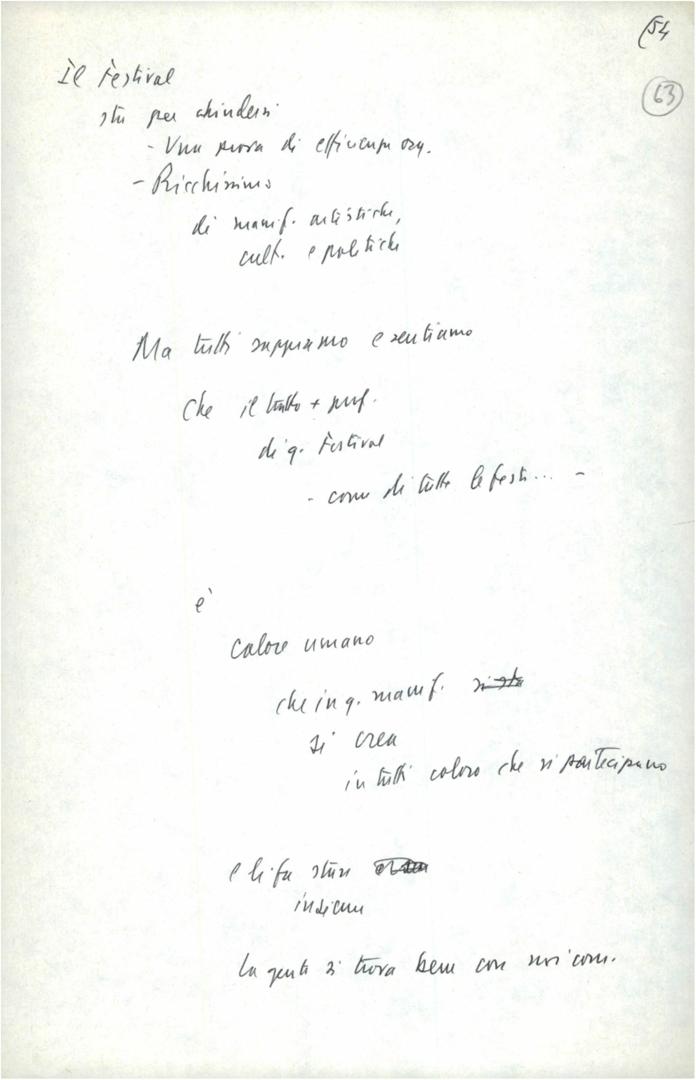 54
63
Il Festival
sta per chiudersi
- Una prova di efficienza org.
- Ricchissimo
di manif. artistiche,
cult. e politiche
Ma tutti sappiamo e sentiamo
che il tratto + prof.
di q. Festival
- come di tutte le feste... -
è
calore umano
che in q. manif.
si crea
in tutti coloro che vi partecipano
e li fa stare
insieme
La gente si trova bene con noi com.